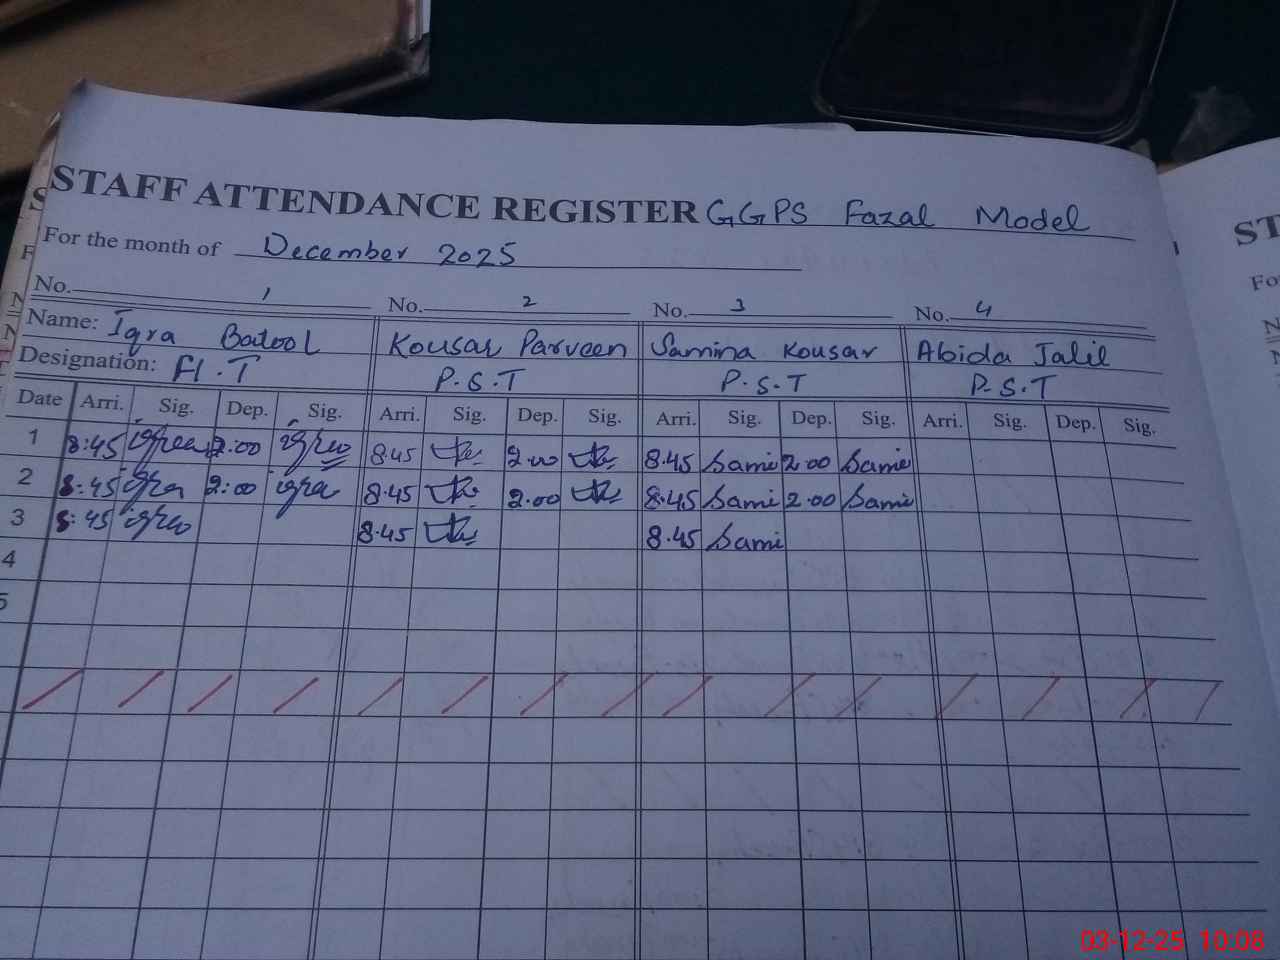 STAFF ATTENDANCE REGISTER GGPS Fazal Model
For the month of December 2025
No. 1 No. 2 No. 3 No. 4
Name: Iqra Batool Kousar Parveen Samina Kousar Abida Jalil
Designation: H.T P.S.T P.S.T P.S.T
Date Arri. Sig. Dep. Sig. Arri. Sig. Dep. Sig. Arri. Sig. Dep. Sig. Arri. Sig. Dep. Sig.
1 8:45 iqra 2:00 iqra 8.45 2.00 8.45 Sami 2.00 Sami
2 8:45 iqra 2:00 iqra 8.45 2.00 8.45 Sami 2.00 Sami
3 8:45 iqra 8.45 8.45 Sami
4
5
ST
Fo
03-12-25 10:08